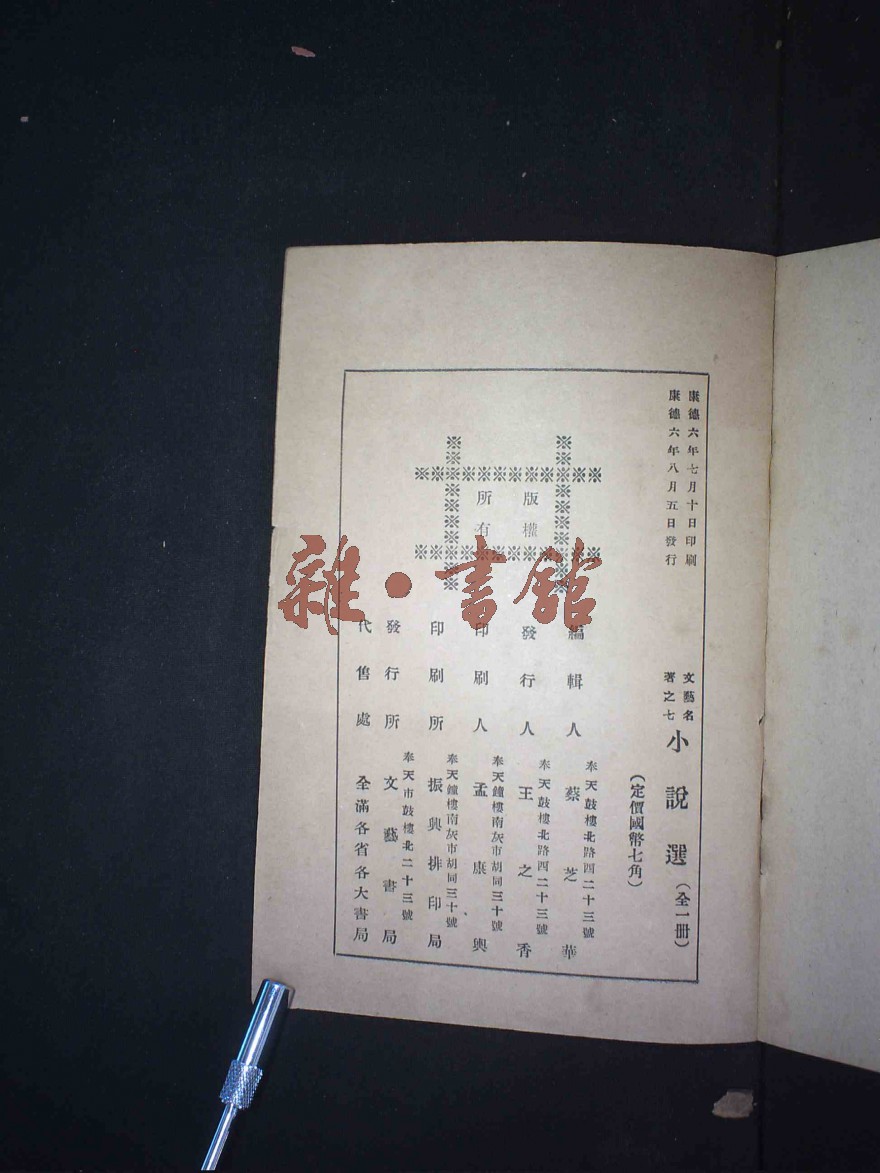 康德六年七月十日印刷
康德六年八月五日發行
文藝名
著之七
小說選（全一冊）
（定價國幣七角）
版權
所有
奉天鼓樓北路西二十三號
編輯人 蔡芝華
奉天鼓樓北路西二十三號
發行人 王之香
奉天鐘樓南灰市胡同三十號
印刷人 孟康興
奉天鐘樓南灰市胡同三十號
印刷所 振興排印局
奉天市鼓樓北二十三號
發行所 文藝書局
代售處 全滿各省各大書局
雜·書館